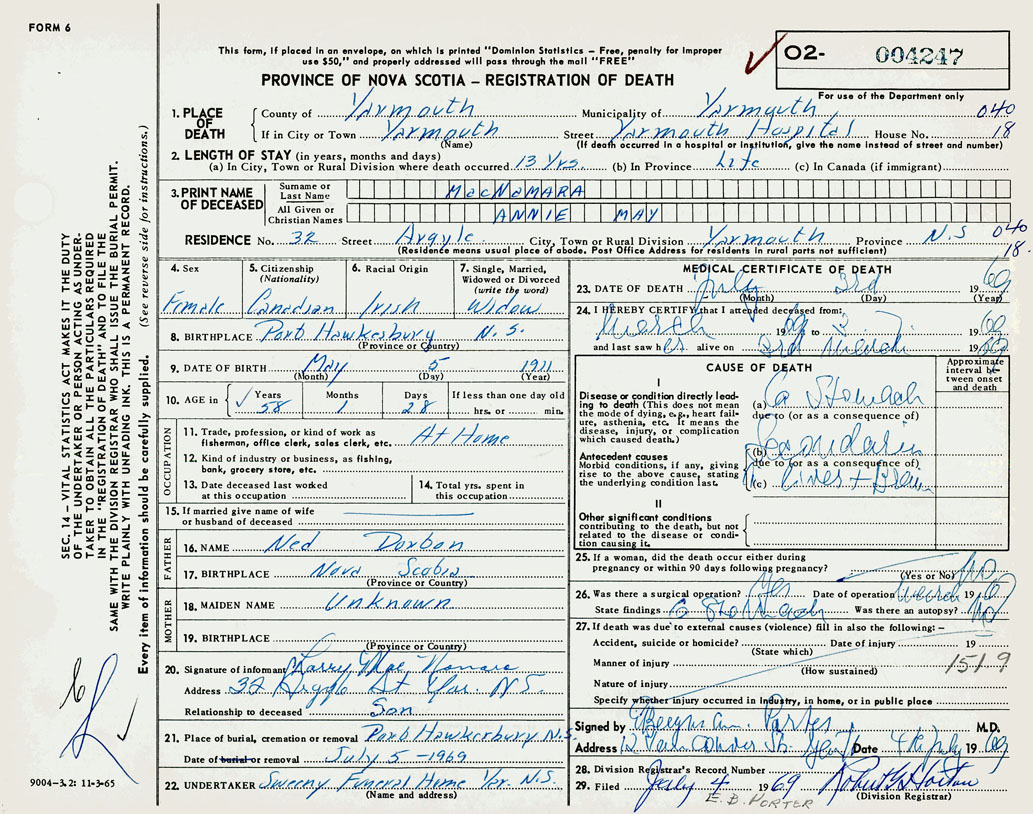 FORM 6
This form, if placed in an envelope, on which is printed "Dominion Statistics – Free, penalty for improper
use $50," and properly addressed will pass through the mail "FREE"
PROVINCE OF NOVA SCOTIA – REGISTRATION OF DEATH
O2- 004247
For use of the Department only
1. PLACE OF DEATH
County of Yarmouth Municipality of Yarmouth 040
If in City or Town Yarmouth Street Yarmouth Hospital House No. 18
(Name) (If death occurred in a hospital or institution, give the name instead of street and number)
2. LENGTH OF STAY (in years, months and days)
(a) In City, Town or Rural Division where death occurred 13 Yrs. (b) In Province Life (c) In Canada (if immigrant)
3. PRINT NAME OF DECEASED
Surname or Last Name MacNaMARA
All Given or Christian Names ANNIE MAY
RESIDENCE No. 32 Street Argyle City, Town or Rural Division Yarmouth Province N.S 040
(Residence means usual place of abode. Post Office Address for residents in rural parts not sufficient) 18.
4. Sex Female
5. Citizenship (Nationality) Canadian
6. Racial Origin Irish
7. Single, Married, Widowed or Divorced (write the word) Widow
8. BIRTHPLACE Port Hawkesbury N.S.
(Province or Country)
9. DATE OF BIRTH May 5 1911
(Month) (Day) (Year)
10. AGE in Years 58 Months 1 Days 28 If less than one day old
hrs. or min.
OCCUPATION
11. Trade, profession, or kind of work as fisherman, office clerk, sales clerk, etc. At Home
12. Kind of industry or business, as fishing, bank, grocery store, etc.
13. Date deceased last worked at this occupation
14. Total yrs. spent in this occupation
15. If married give name of wife or husband of deceased
FATHER
16. NAME Ned
17. BIRTHPLACE Nova Scotia
(Province or Country)
MOTHER
18. MAIDEN NAME Unknown
19. BIRTHPLACE
(Province or Country)
20. Signature of informant Larry Mac Namara
Address 32 Argyle St Yar. N.S.
Relationship to deceased Son
21. Place of burial, cremation or removal Port Hawkesbury N.S.
Date of burial or removal July 5 - 1969
22. UNDERTAKER Sweeny Funeral Home Yar. N.S.
(Name and address)
MEDICAL CERTIFICATE OF DEATH
23. DATE OF DEATH July 3rd 1969
(Month) (Day) (Year)
24. I HEREBY CERTIFY that I attended deceased from:
March 1969 to 3 7 1969
and last saw her alive on 3rd March 1969
CAUSE OF DEATH
Approximate interval between onset and death
I
Disease or condition directly leading to death (This does not mean the mode of dying, e.g., heart failure, asthenia, etc. It means the disease, injury, or complication which caused death.)
(a) Ca Stomach
due to (or as a consequence of)
Antecedent causes
Morbid conditions, if any, giving rise to the above cause, stating the underlying condition last.
(b) Secondaries
due to (or as a consequence of)
(c) Liver +
II
Other significant conditions contributing to the death, but not related to the disease or condition causing it.
25. If a woman, did the death occur either during
pregnancy or within 90 days following pregnancy? No
(Yes or No)
26. Was there a surgical operation? Yes Date of operation March 19
State findings Ca Stomach Was there an autopsy? No
27. If death was due to external causes (violence) fill in also the following: –
Accident, suicide or homicide? Date of injury 19
(State which)
Manner of injury 1519
(How sustained)
Nature of injury
Specify whether injury occurred in Industry, in home, or in public place
Signed by M.D.
Address Date 4th July 1969
28. Division Registrar's Record Number
29. Filed July 4 1969 Robert Horton
E. B. PORTER (Division Registrar)
SEC. 14 – VITAL STATISTICS ACT MAKES IT THE DUTY
OF THE UNDERTAKER OR PERSON ACTING AS UNDER-
TAKER TO OBTAIN ALL THE PARTICULARS REQUIRED
IN THE "REGISTRATION OF DEATH" AND TO FILE THE
SAME WITH THE DIVISION REGISTRAR WHO SHALL ISSUE THE BURIAL PERMIT.
WRITE PLAINLY WITH UNFADING INK. THIS IS A PERMANENT RECORD.
Every item of information should be carefully supplied. (See reverse side for instructions.)
9004–3.2: 11-3-65